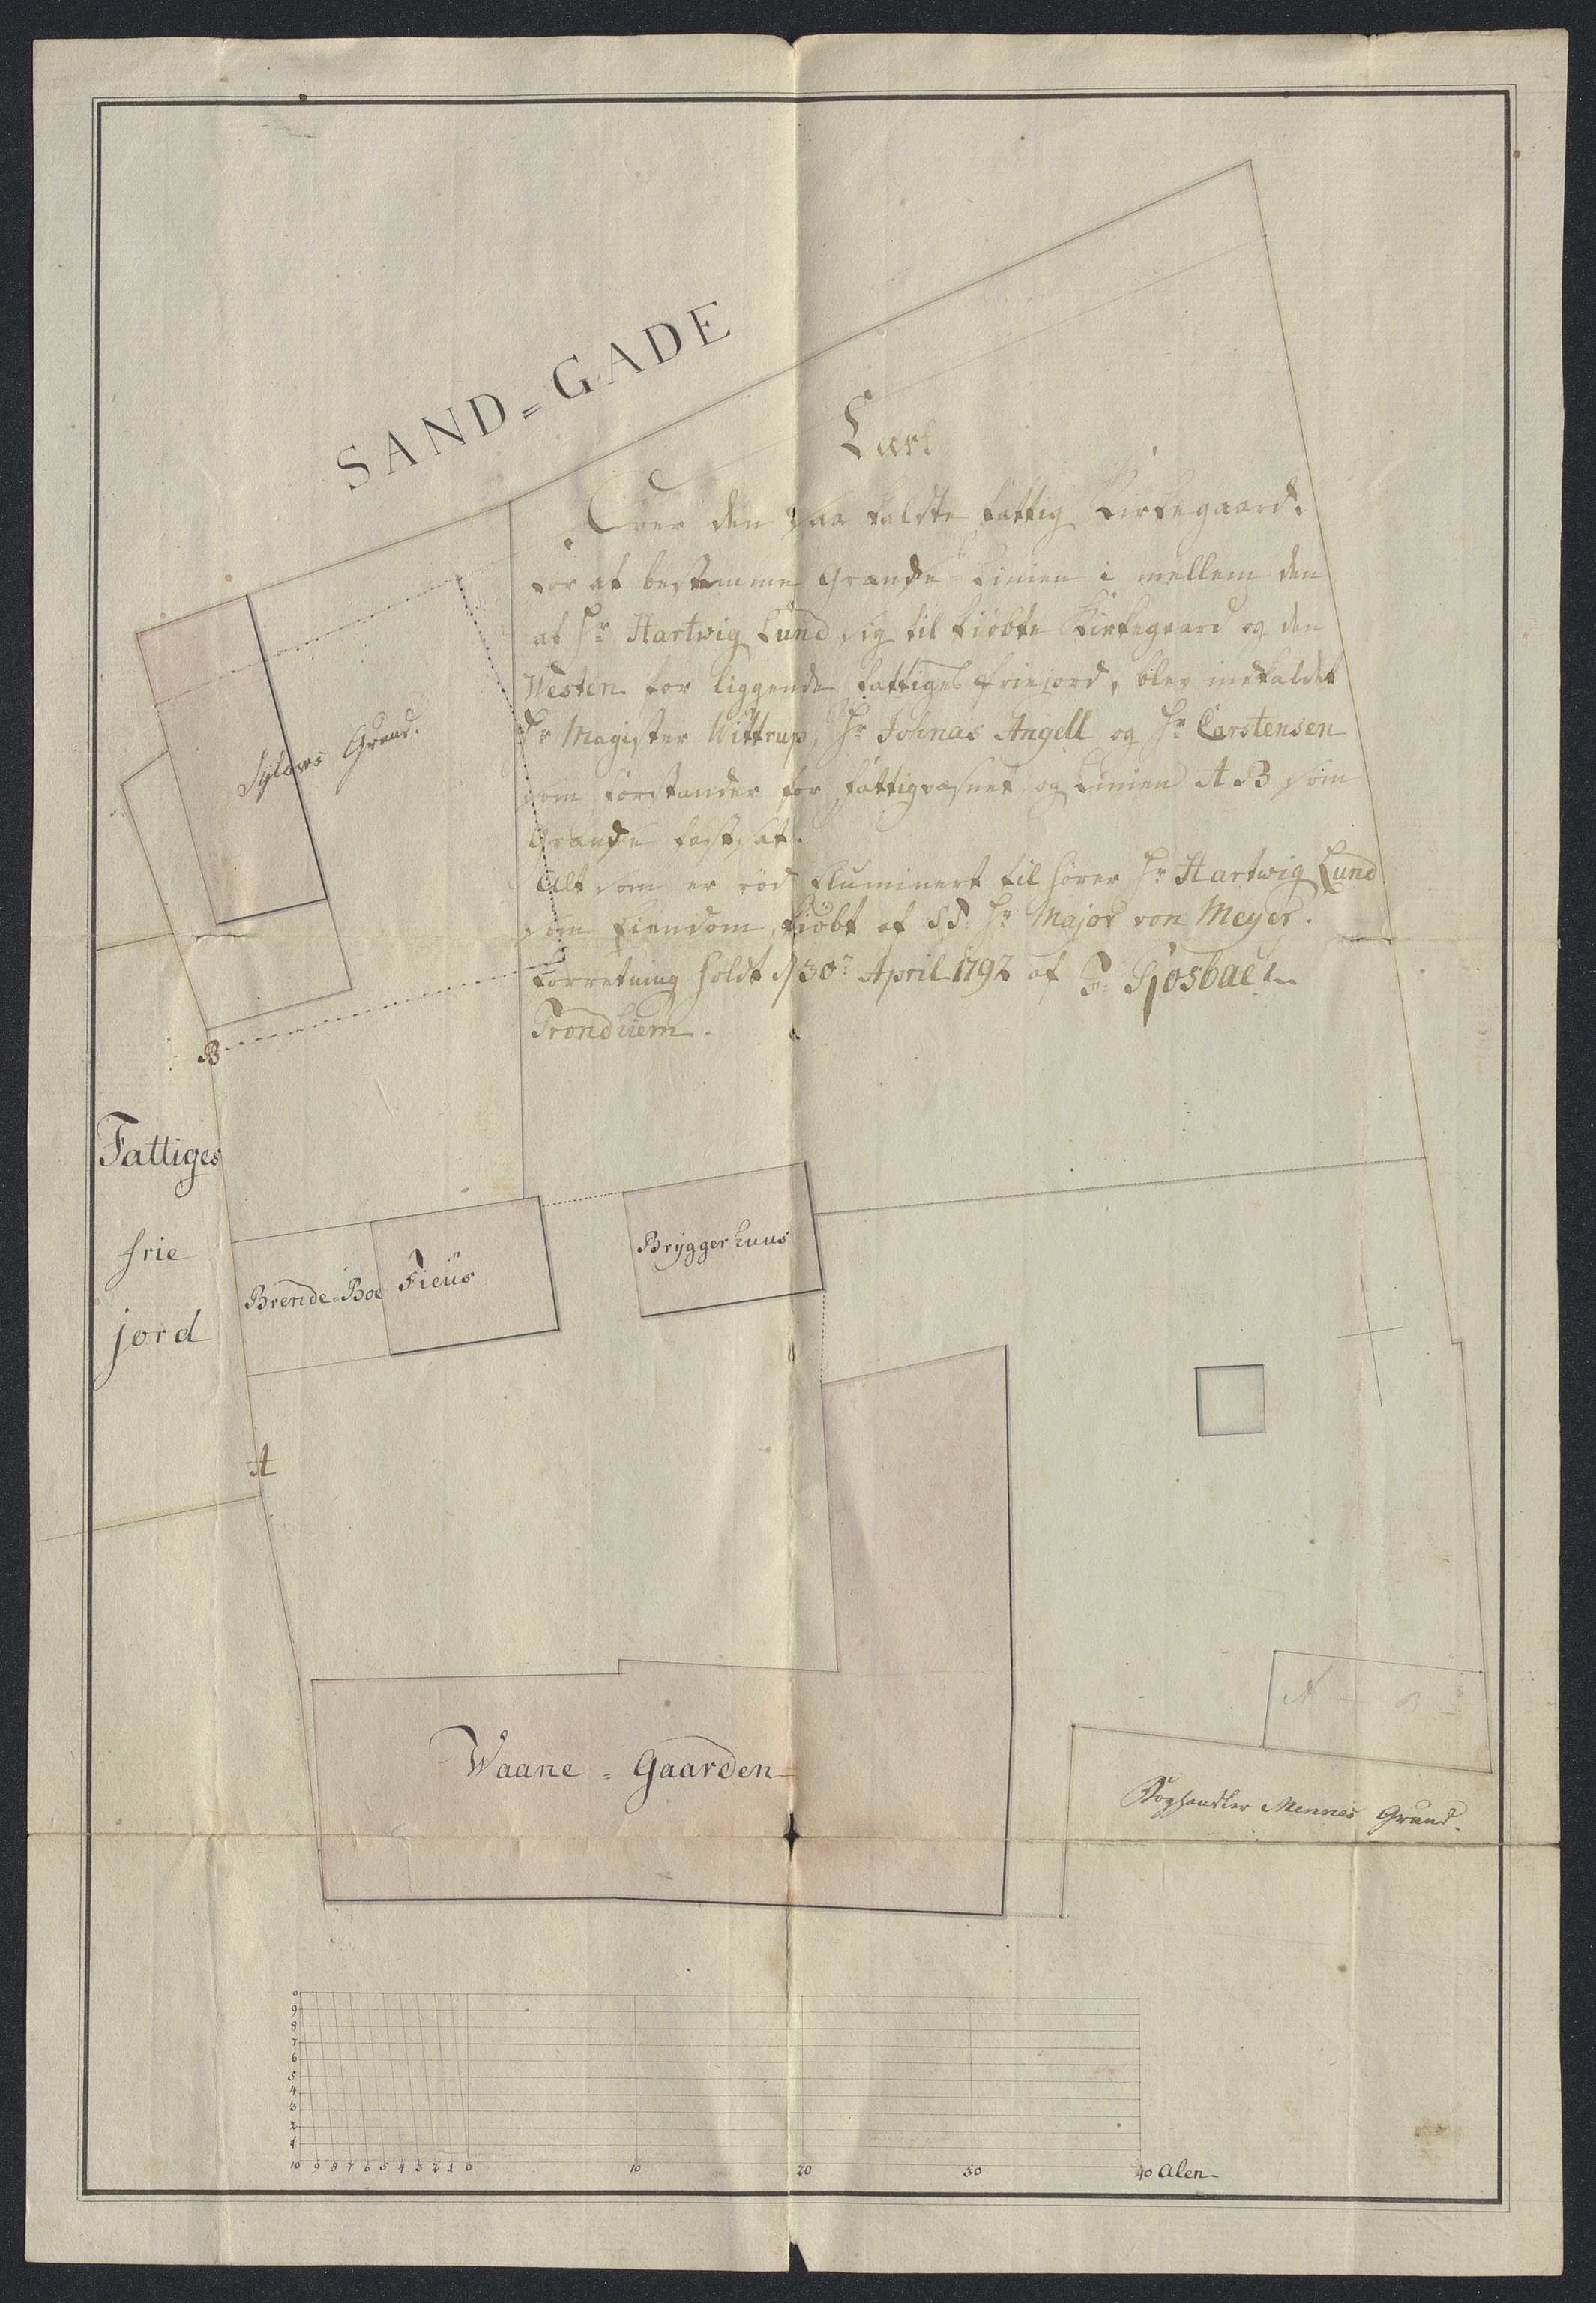 SAND = GADE
Cart
Over den saa kaldte fattig Kirkegaard.
for at bestemme Grændse = Linien i mellem den
af Hr Hartwig Lund sig til kiöbte Kirkegaard og den
Westen for liggende fattiges friejord, blev indkaldet
Hr Magister Wittrup, Hr Johnas Angell og Hr Carstensen
som forstander for fattigvæsnet og Linien A B som
Grændse fastsat.
Alt som er röd Eluminert til hörer Hr Hartwig Lund
som Eiendom, kiöbt af Hr Major von Meyer.
forretning holdt d 30te April 1792 af F:
Trondhiem.
Sylows Grund.
B
Fattiges
frie
jord
Brende=Boe
Fieüs
Bryggerhuus
A
Waane = Gaarden
Boghandler Mennes Grund.
0
9
8
7
6
5
4
3
2
1
10 9 8 7 6 5 4 3 2 1 0 10 20 30 40 Alen